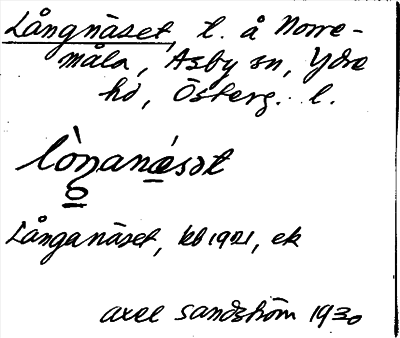 Långnäset, l. å Norre-
måla, Asby sn, Ydre
hd, Österg. l.
lòŋanǽsət
Långanäset, kb 1921, ek
Axel Sandström 1930